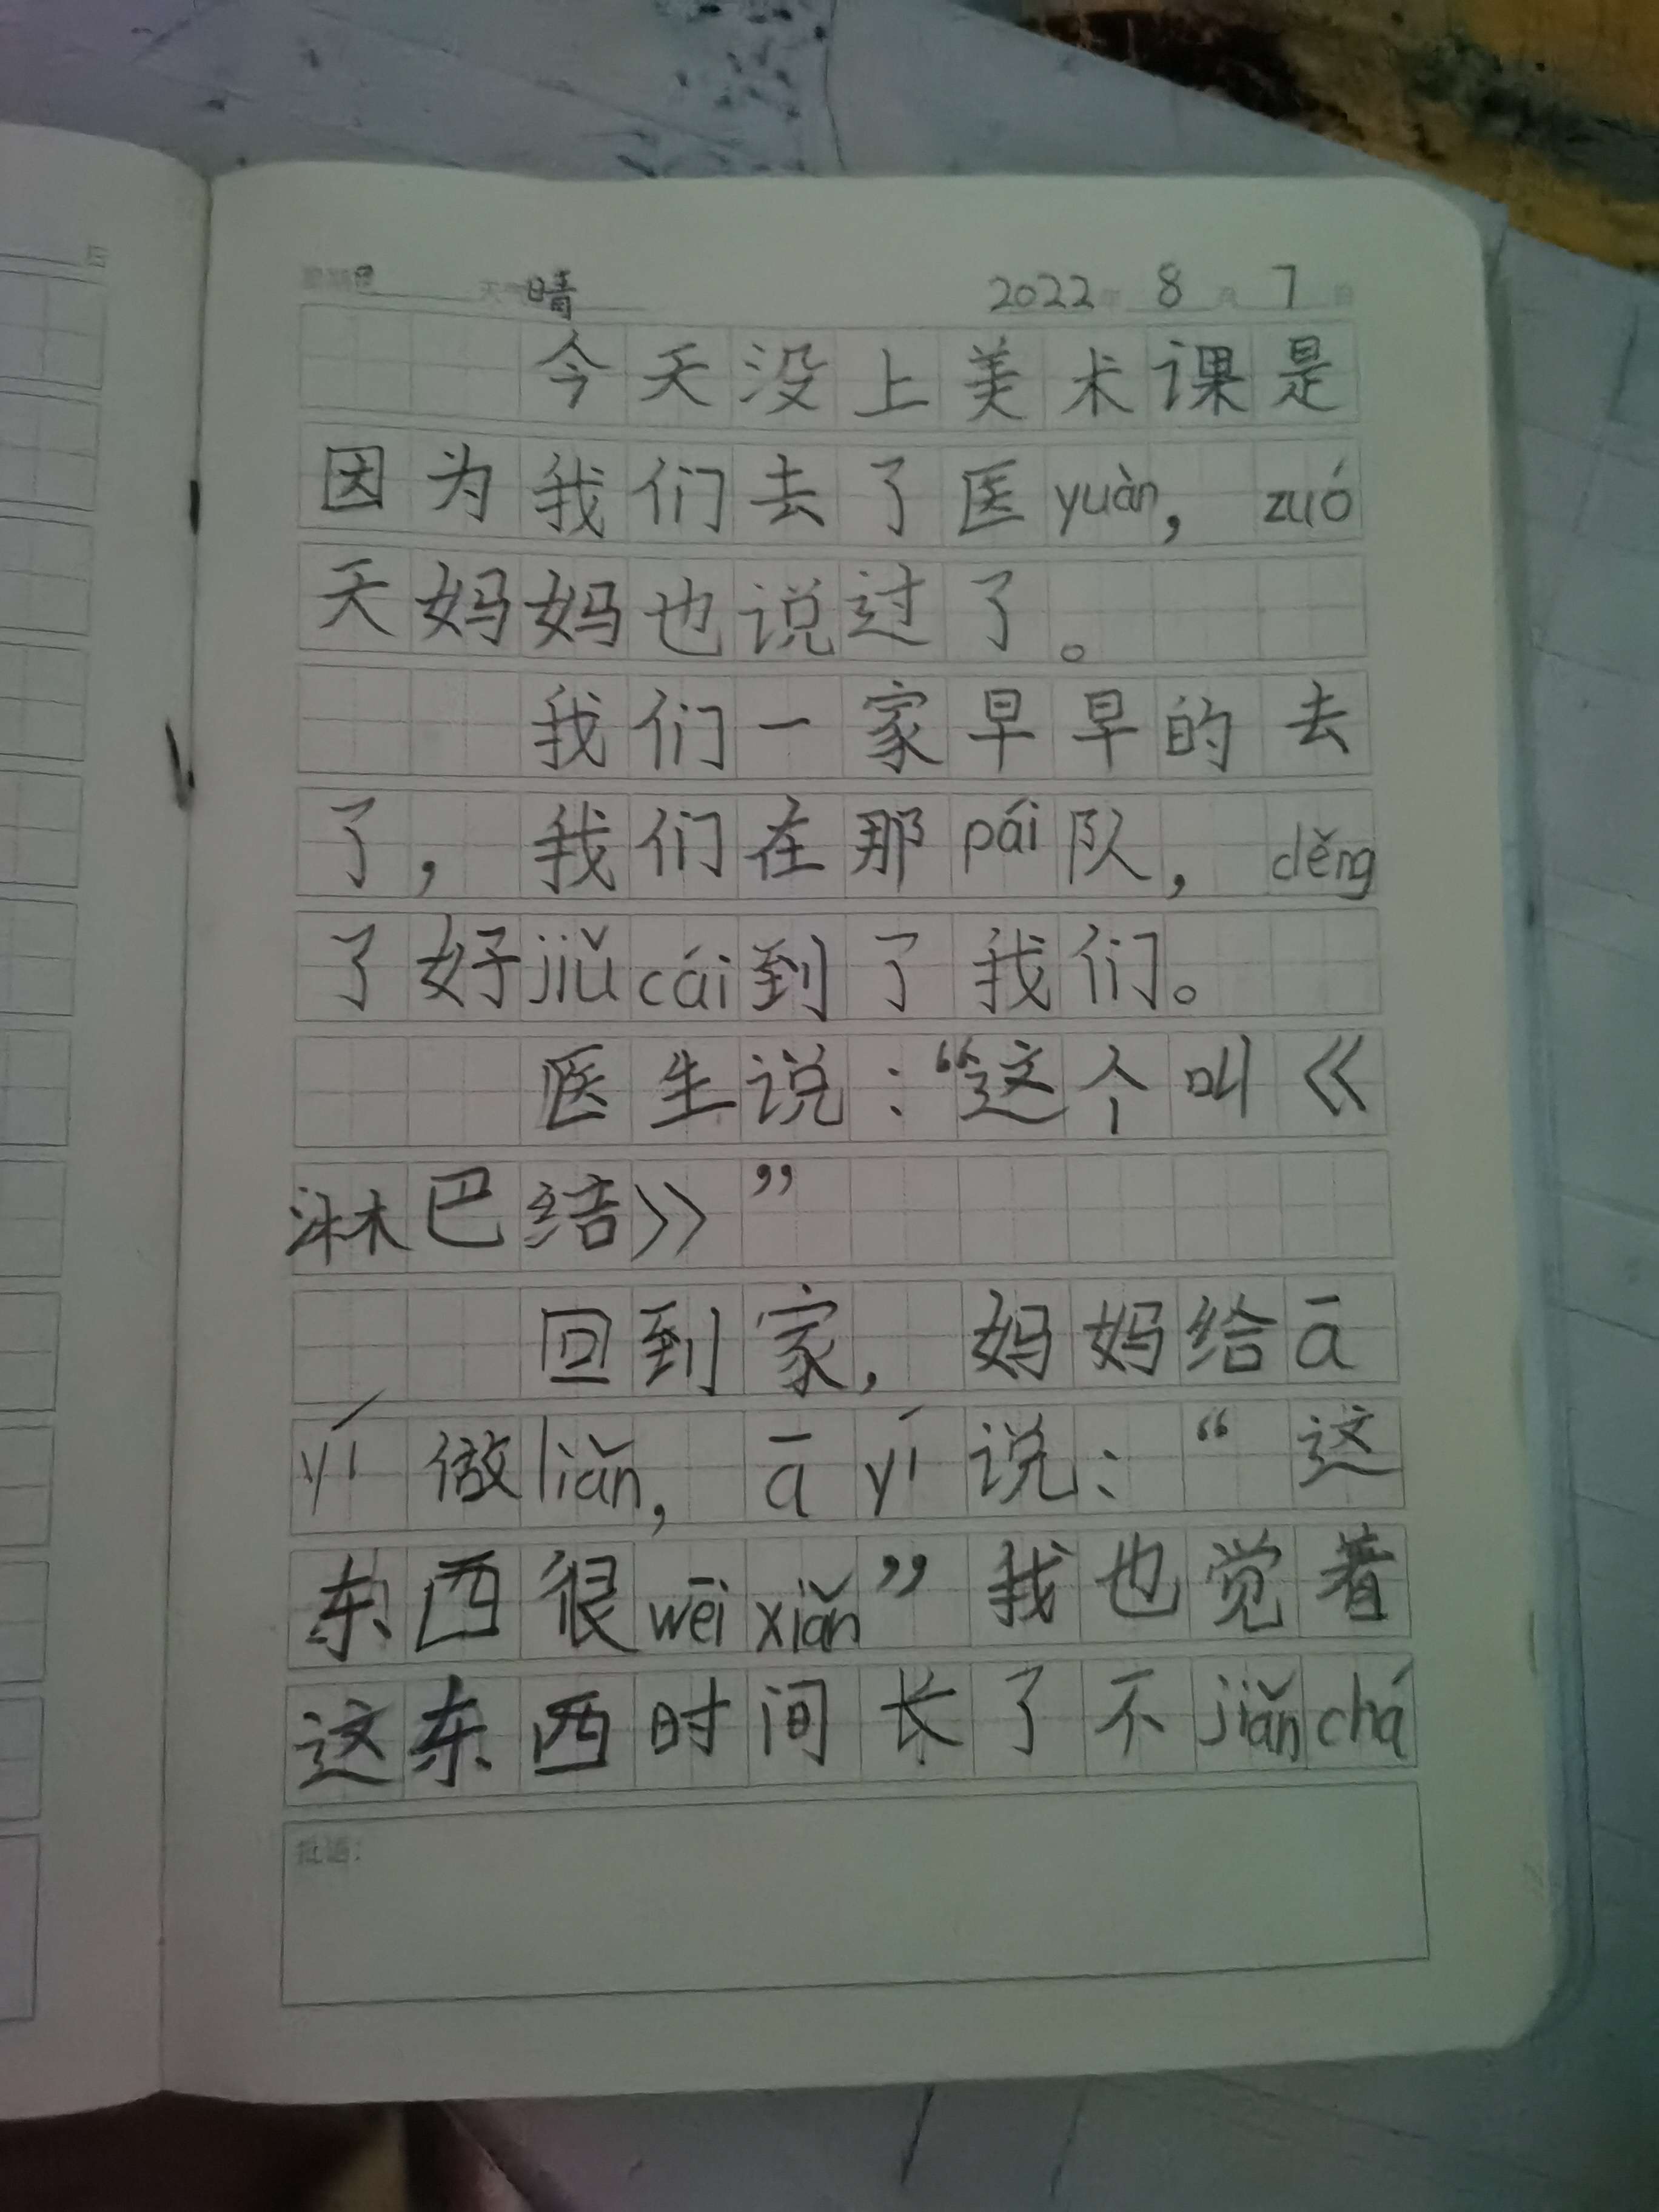 星期日 天气晴 2022年 8月 7日
今天没上美术课是
因为我们去了医yuàn，zuó
天妈妈也说过了。
我们一家早早的去
了，我们在那pái队，děng
了好jiǔcái到了我们。
医生说：“这个叫《
淋巴结》”
回到家，妈妈给ā
yí做liǎn，ā yí说：“这
东西很wēixiǎn”我也觉着
这东西时间长了不jiǎnchá
批语：